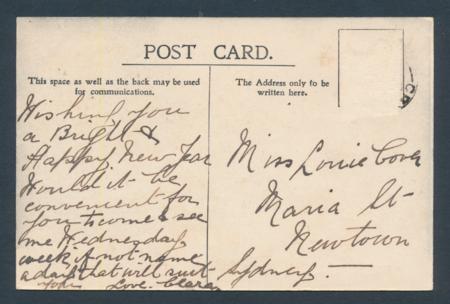 POST CARD.
This space as well as the back may be used
for communications.
The Address only to be
written here.
Wishing you
a Bright &
Happy New Year
Would it be
convenient for
you to come & see
me Wednesday
week if not name
a day that will suit
you Love Clara
Miss Louie Cover
Maria St
Newtown
Sydney